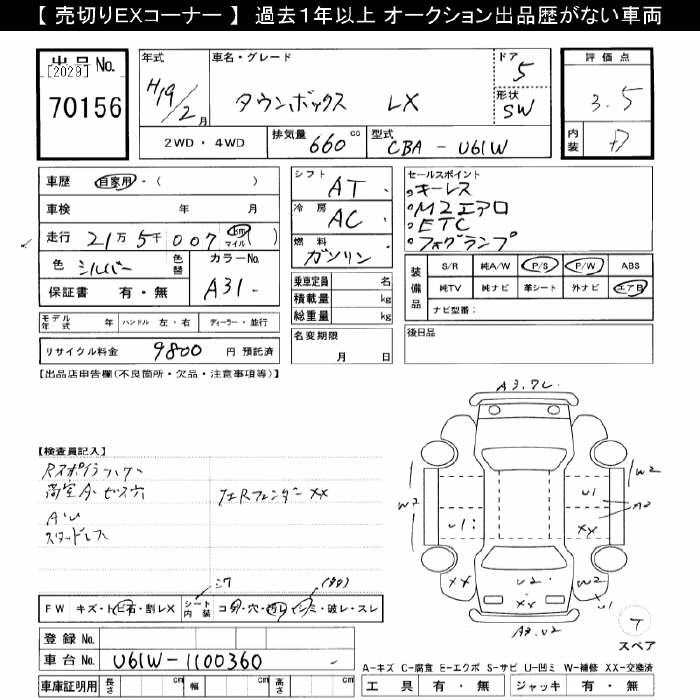 【 売切りEXコーナー 】 過去1年以上 オークション出品歴がない車両
出品No.
[2029]
70156
年式
H19/2月
車名・グレード
タウンボックス LX
ドア
5
形状
SW
2WD・4WD
排気量 660 cc
型式 CBA-U61W
評価点
3.5
内装
車歴 自家用・( )
車検 年 月
走行 21万5千007 km マイル ( )
色 シルバー 色替 カラーNo.
A31-
保証書 有・無
シフト AT
冷房 AC
燃料 ガソリン
乗車定員 名
積載量 kg
総重量 kg
セールスポイント
キーレス
M2エアロ
ETC
フォグランプ
装備品
S/R 純A/W P/S P/W ABS
純TV 純ナビ 革シート 外ナビ エアB
ナビ型式：
モデル年式 年 ハンドル 左・右 ディーラー・並行
名変期限
月 日
後日品
リサイクル料金 9800 円 預託済
【出品店申告欄(不良箇所・欠品・注意事項等)】
【検査員記入】
RスポイラーハクA
スタッドレス
フェRフェンダーxx
A3.7L
W2
W2
U1
U1:
xx
xx
U2
xx
W2
U1
A3.U2
スペア
シワ
FW キズ・トビ石・割レX シート内装 コゲ・穴・汚レ・シミ・破レ・スレ
登録No.
車台No. U61W-1100360 -
A-キズ C-腐食 E-エクボ S-サビ U-凹ミ W-補修 XX-交換済
車庫証明用 長さ cm 幅 cm 高さ cm
工具 有・無 ジャッキ 有・無